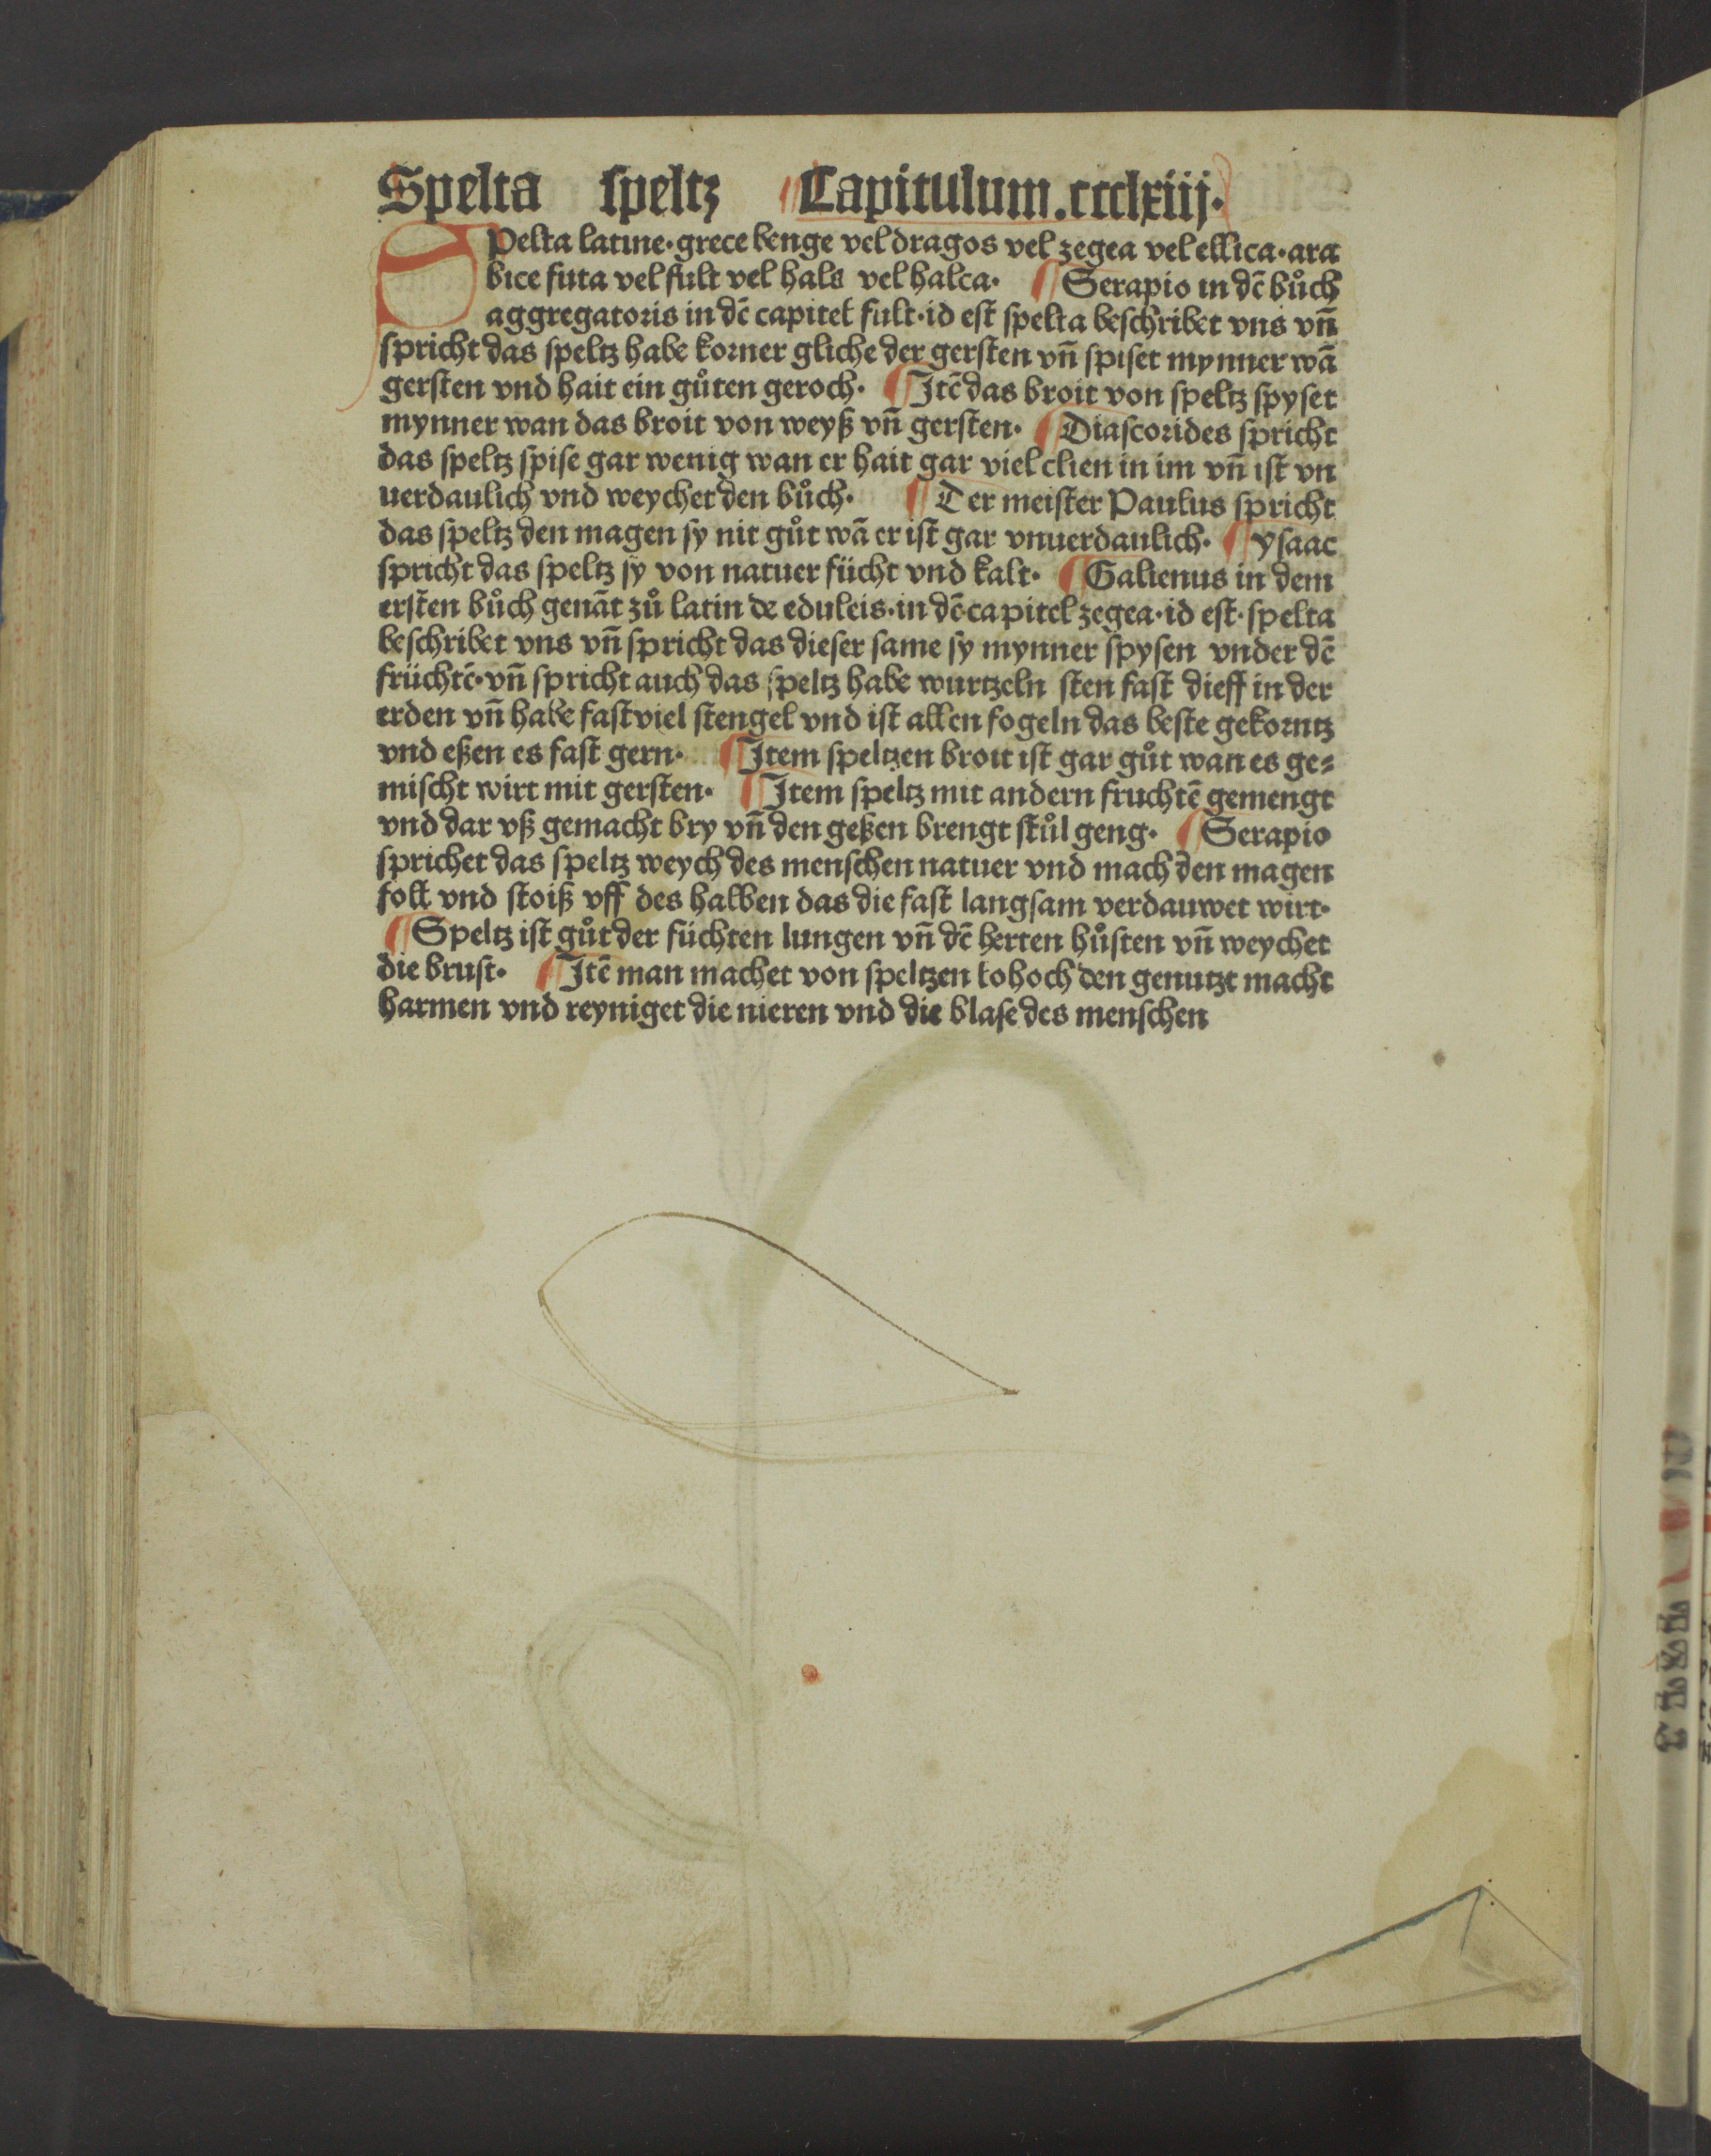 Spelta speltz Capitulum.ccclxiij.
SPelta latine·grece benge vel dragos vel zegea vel ellica·ara
bice futa vel fult vel hals vel halca· Serapio in dē bůch
aggregatoris in dē capitel fult·id est spelta beschribet vns vñ
spricht das speltz habe korner gliche der gersten vñ spiset mynner wā
gersten vnd hait ein gůten geroch· Itē das broit von speltz spyset
mynner wan das broit von weyß vñ gersten· Diascorides spricht
das speltz spise gar wenig wan er hait gar viel clien in im vñ ist vn
uerdaulich vnd weychet den bůch· Der meister Paulus spricht
das speltz den magen sy nit gůt wā er ist gar vnuerdaulich· ysaac
spricht das speltz sy von natuer fücht vnd kalt· Galienus in dem
ersten bůch genāt zů latin de eduleis·in dē capitel zegea·id est·spelta
beschribet vns vñ spricht das dieser same sy mynner spysen vnder dē
früchtē·vñ spricht auch das speltz habe wurtzeln sten fast dieff in der
erden vñ habe fast viel stengel vnd ist allen fogeln das beste gekorntz
vnd eßen es fast gern· Item speltzen broit ist gar gůt wan es ge⸗
mischt wirt mit gersten· Item speltz mit andern fruchtē gemengt
vnd dar vß gemacht bry vñ den geßen brengt stůl geng· Serapio
sprichet das speltz weych des menschen natuer vnd mach den magen
foll vnd stoiß vff des halben das die fast langsam verdauwet wirt·
Speltz ist gůt der füchten lungen vñ dē herten hůsten vñ weychet
die brust· Itē man machet von speltzen kohoch den genutzt macht
harmen vnd reyniget die nieren vnd die blase des menschen